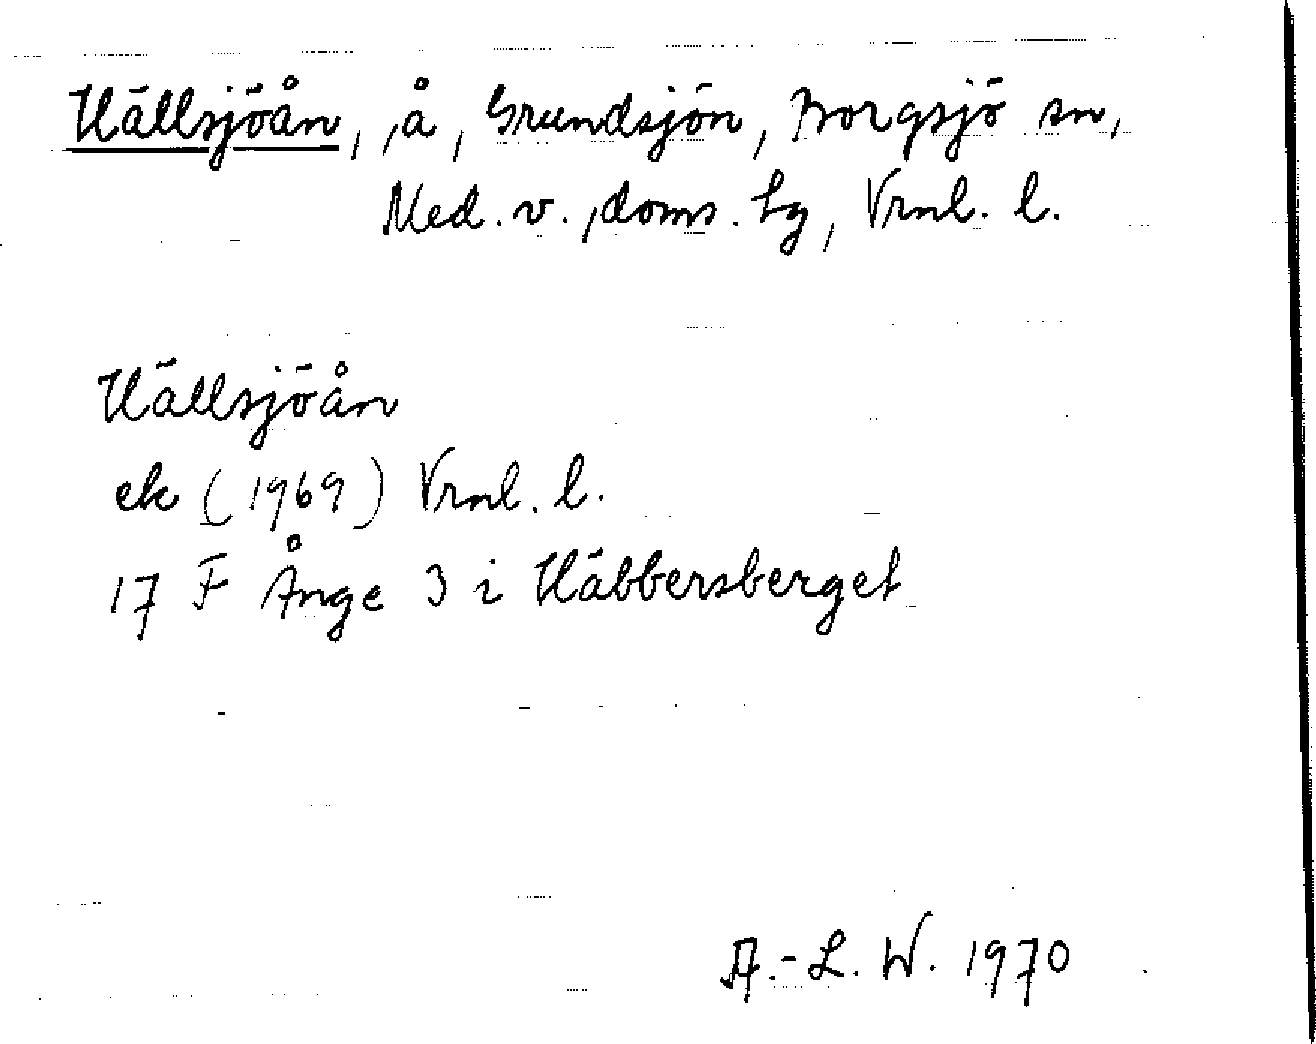 Hällsjöån, å, Grundsjön, Borgsjö sn,
Med. v. doms. tg, Vrnl. l.
Hällsjöån
ek (1969) Vrnl. l.
17 F Ånge 3 i Häbbersberget
A.-L. W. 1970